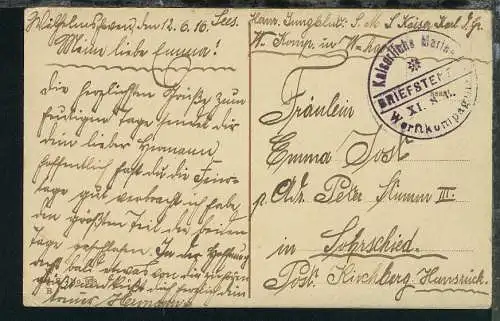 Wilhelmshaven, den 12.6.16.
Meine liebe Emma!
die herzlichsten Grüße zum
heutigen Tage sendet dir
dein lieber Hermann
hoffentlich hast du die Feier-
tage gut verbracht ich habe
den größten Teil der
Tage geschlafen. In der Hoffnung
bald etwas von dir
dich herzlich dein
treuer Hermann
S. M. S. Kaiser Karl d. Gr.
Komp. in W-haven
Kaiserliche Marine
BRIEFSTEMPEL
XI.
Werftkompagnie
Fräulein
Emma Jost
p. Adr. Peter Stumm III.
in Sohrschied.
Post. Kirchberg. Hunsrück.